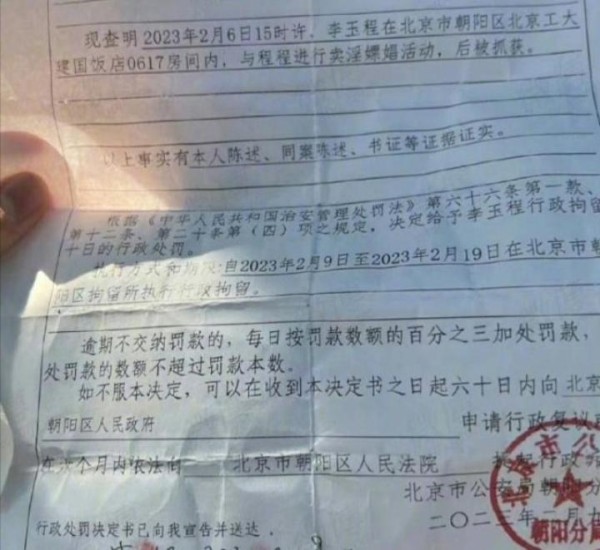 现查明2023年2月6日15时许，李玉程在北京市朝阳区北京工大
建国饭店0617房间内，与程程进行卖淫嫖娼活动，后被抓获。
以上事实有本人陈述、同案陈述、书证等证据证实。
根据《中华人民共和国治安管理处罚法》第六十六条第一款、
第十二条、第二十条第（四）项之规定，决定给予李玉程行政拘留
十日的行政处罚。
执行方式和期限：自2023年2月9日至2023年2月19日在北京市朝
阳区拘留所执行行政拘留。
逾期不交纳罚款的，每日按罚款数额的百分之三加处罚款，
处罚款的数额不超过罚款本数。
如不服本决定，可以在收到本决定书之日起六十日内向 北京
朝阳区人民政府 申请行政复议
在六个月内依法向 北京市朝阳区人民法院 提起行政
北京市公安局朝阳分
二〇二三年二月九
行政处罚决定书已向我宣告并送达。
北京市公
朝阳分局